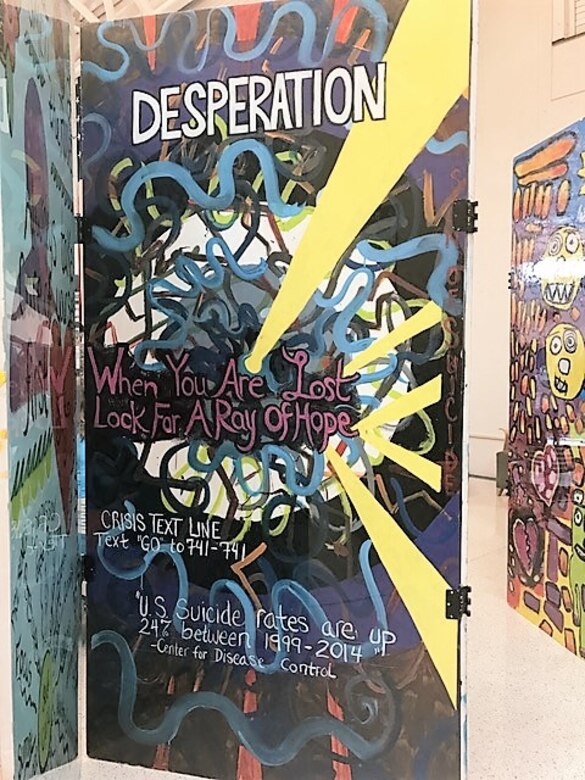 DESPERATION
When You Are Lost
Look For A Ray Of Hope
CRISIS TEXT LINE
Text "GO" to 741-741
"U.S. Suicide rates are up
24% between 1999-2014"
-Center for Disease Control
OF SUICIDE